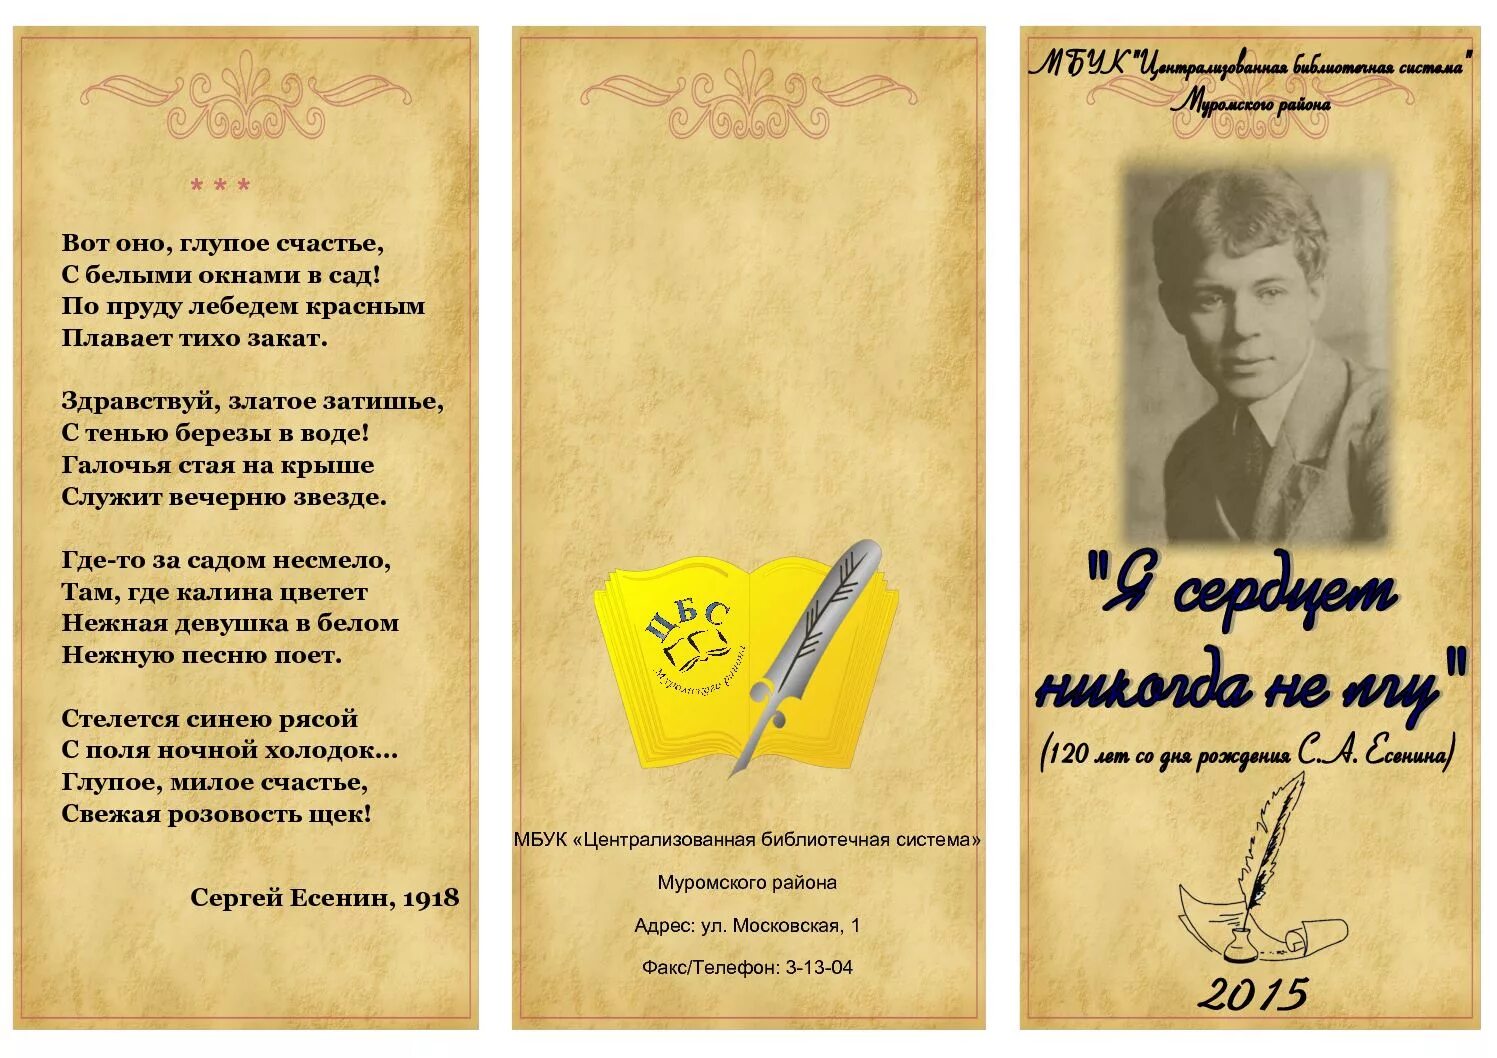 * * *
Вот оно, глупое счастье,
С белыми окнами в сад!
По пруду лебедем красным
Плавает тихо закат.
Здравствуй, златое затишье,
С тенью березы в воде!
Галочья стая на крыше
Служит вечерню звезде.
Где-то за садом несмело,
Там, где калина цветет
Нежная девушка в белом
Нежную песню поет.
Стелется синею рясой
С поля ночной холодок...
Глупое, милое счастье,
Свежая розовость щек!
Сергей Есенин, 1918
ЦБС
Муромского района
МБУК «Централизованная библиотечная система»
Муромского района
Адрес: ул. Московская, 1
Факс/Телефон: 3-13-04
МБУК "Централизованная библиотечная система"
Муромского района
"Я сердцем
никогда не лгу"
(120 лет со дня рождения С.А. Есенина)
2015